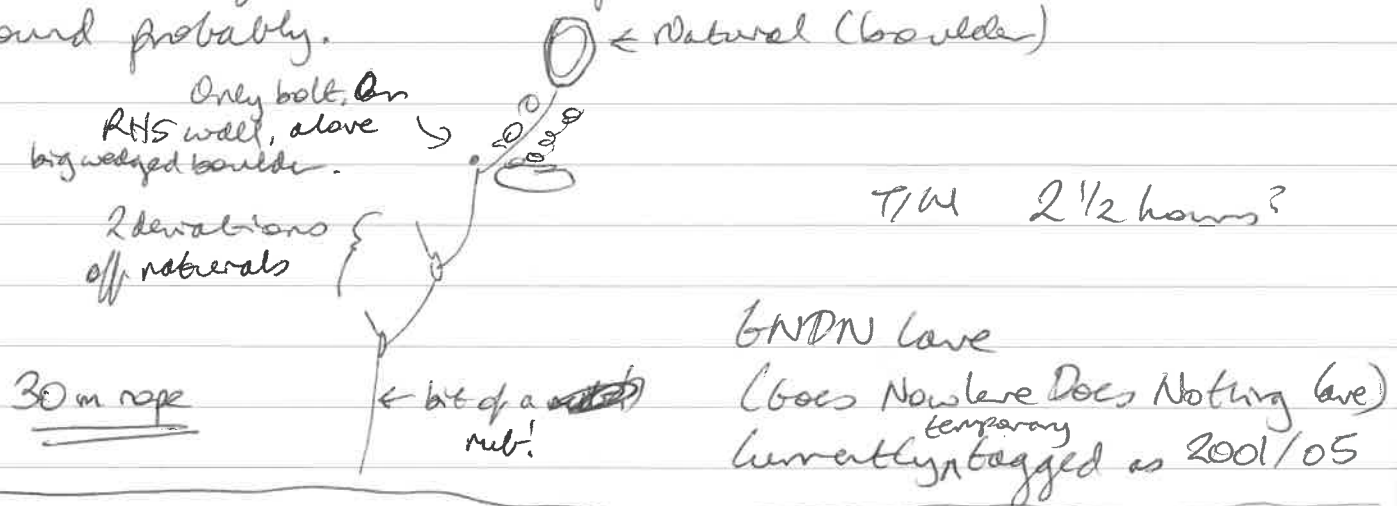 ound probably.
← Natural (boulder)
Only bolt, On
RHS wall, above
big wedged boulder.
2 deviations
off naturals
T/U 2 1/2 hours?
30m rope
← bit of a
rub!
GNDN Cave
(Goes Nowhere Does Nothing Cave)
temporary
Currently tagged as 2001/05